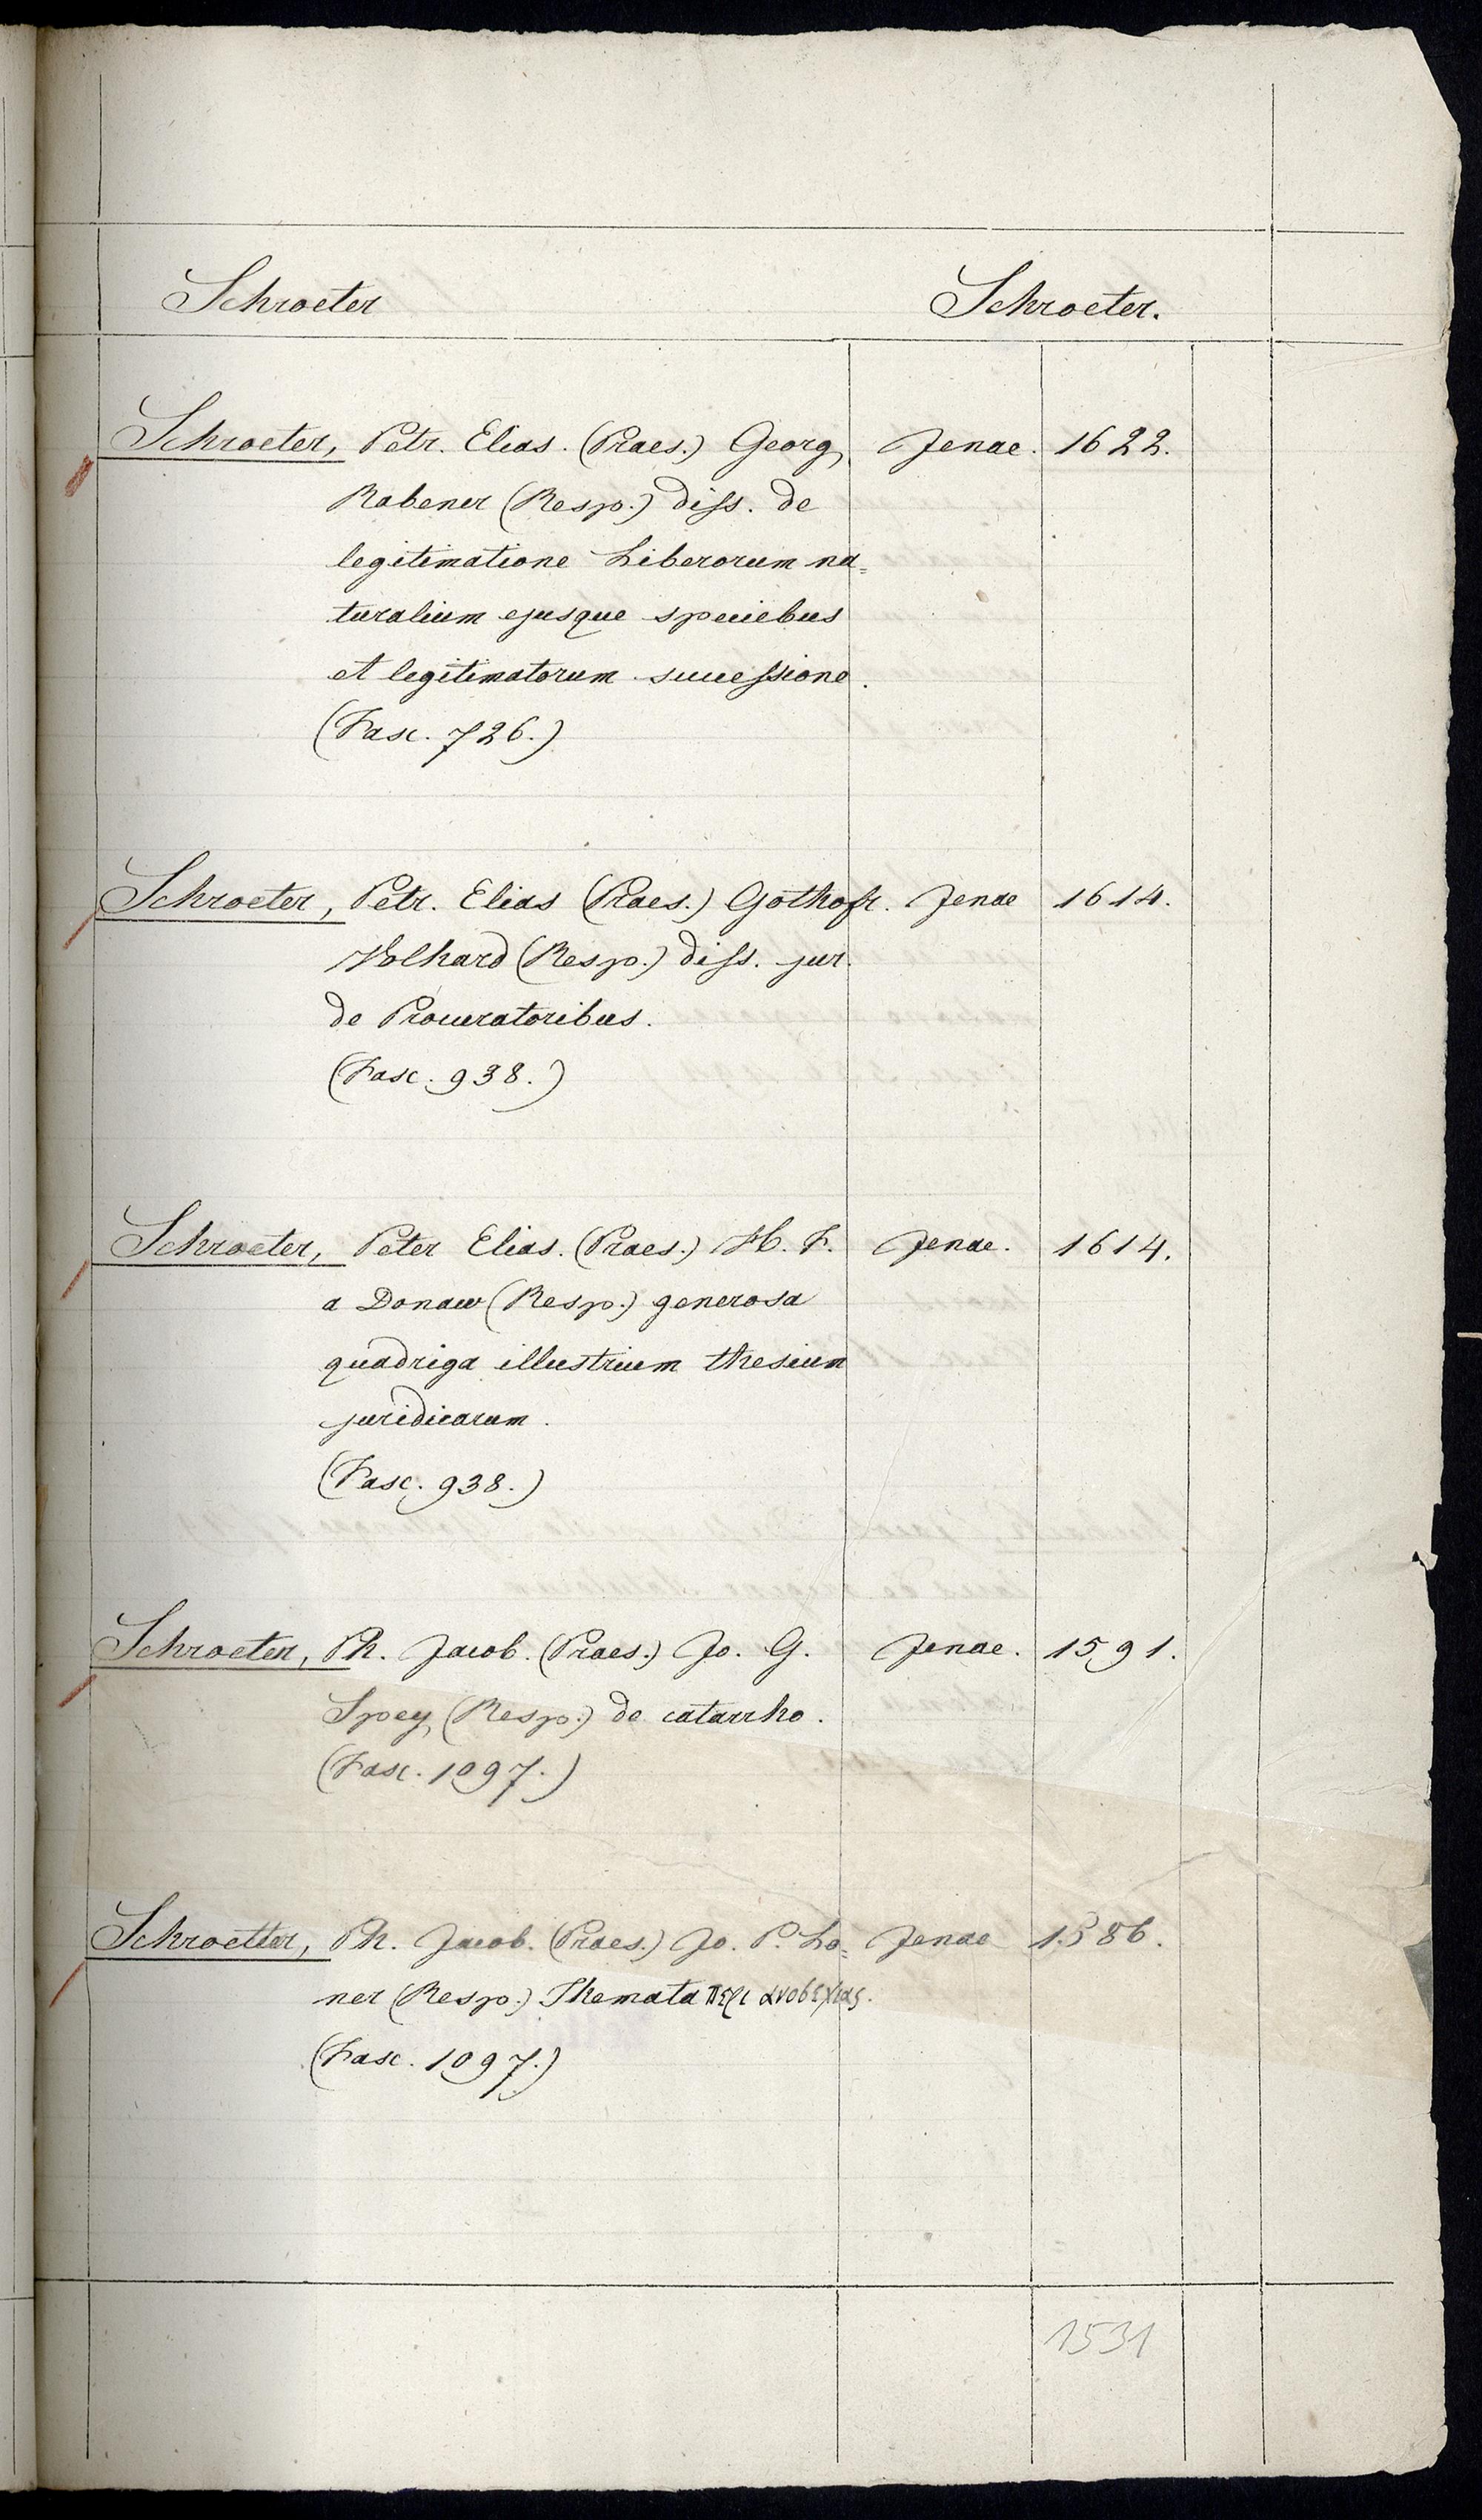 Schroeter Schroeter.
Schroeter, Petr. Elias. (Praes.) Georg Jenae. 1622.
Rabener (Resp.) diss. de
legitimatione Liberorum na=
turalium ejusque speciebus
et legitimatorum successione.
(Fasc. 726.)
Schroeter, Petr. Elias (Praes.) Gothofr. Jenae 1614.
Volhard (Resp.) diss. jur.
de Procuratoribus.
(Fasc. 938.)
Schroeter, Peter Elias. (Praes.) H. F. Jenae. 1614.
a Donaw (Resp.) generosa
quadriga illustrium thesium
juridicarum.
(Fasc. 938.)
Schroeter, Ph. Jacob. (Praes.) Jo. G. Jenae. 1591.
Spey (Resp.) de catarrho.
(Fasc. 1097.)
Schroetter, Ph. Jacob. (Praes.) Jo. P. Lo= Jenae 1586.
ner (Resp.) Themata περι
(Fasc. 1097.)
1531